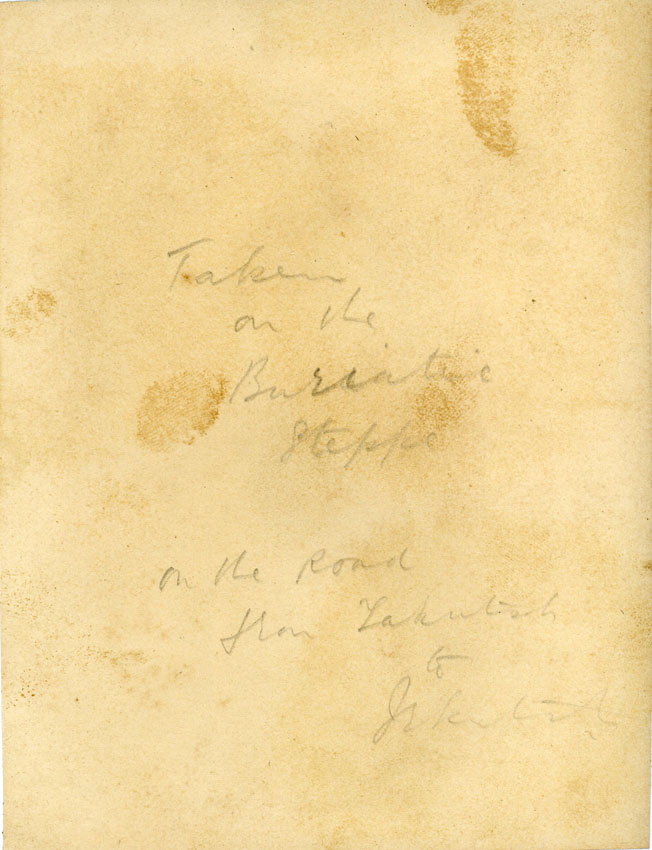 Taken
on the
Buriatic
Steppe
on the Road
from Yakutsk
to
Irkutsk